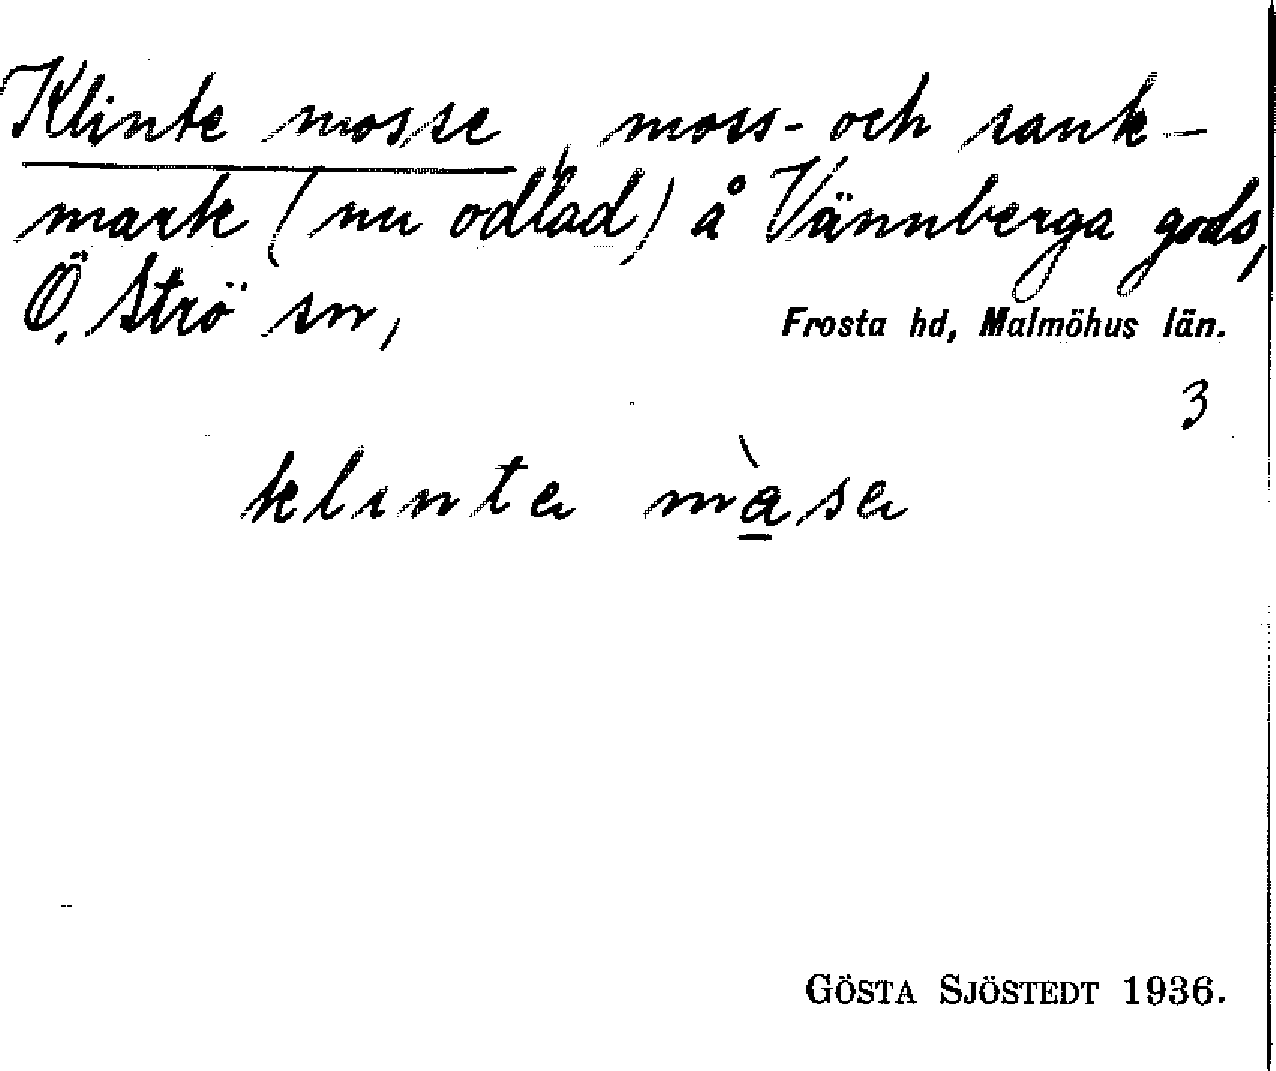 Klinte mosse, moss- och sank-
mark (nu odlad) å Vännberga gods,
Ö. Strö sn,
Frosta hd, Malmöhus län.
3
klınta màsa
GÖSTA SJÖSTEDT 1936.